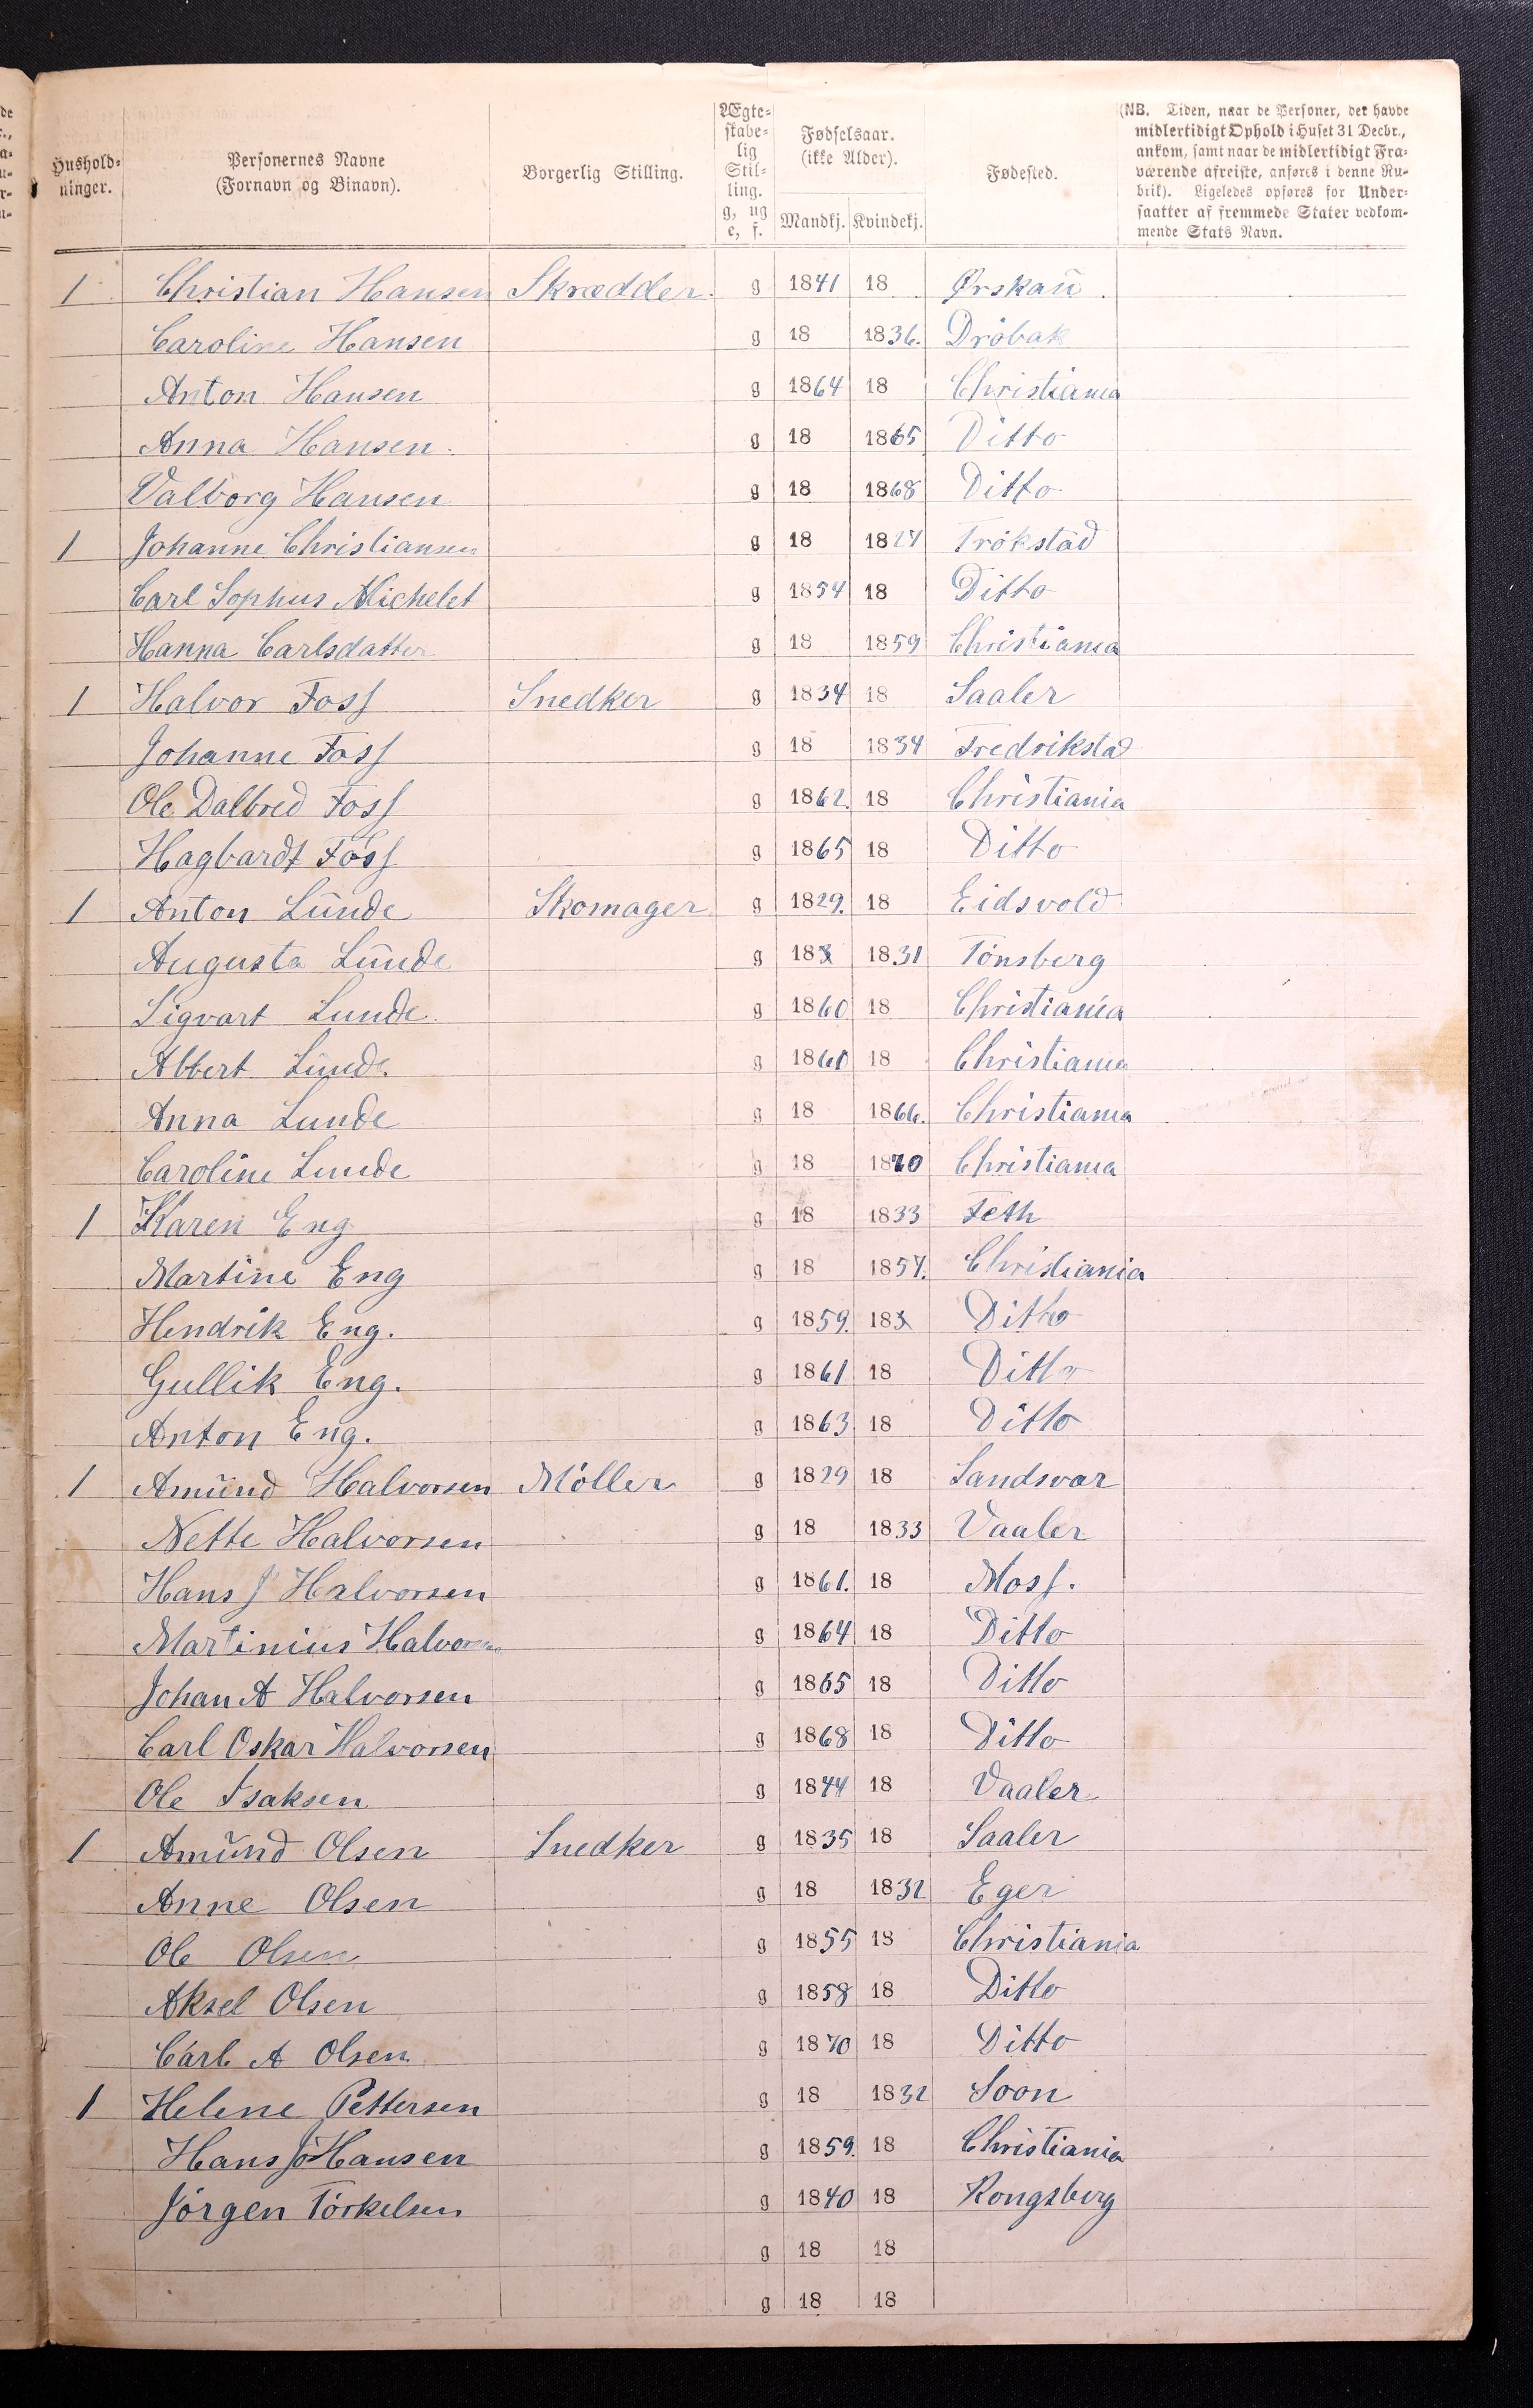 Hushold-
ninger.
Personernes Navne
(Fornavn og Binavn).
Borgerlig Stilling.
Ægte-
skabe-
lig
Stil-
ling.
g, ug
e, f.
Fødselsaar.
(ikke Alder).
Mandkj. Kvindekj.
Fødested.
(NB. Tiden, naar de Personer, der havde
midlertidigt Ophold i Huset 31 Decbr.,
ankom, samt naar de midlertidigt Fra-
værende afreiste, anføres i denne Ru-
brik). Ligeledes opføres for Under-
saatter af fremmede Stater vedkom-
mende Stats Navn.
1 Christian Hansen Skrædder g 1841 18 Ørskaū
Caroline Hansen g 18 1836. Drøbak
Anton Hansen g 1864 18 Christiania
Anna Hansen g 18 1865 Ditto
Valborg Hansen g 18 1868 Ditto
1 Johanne Christiansen g 18 18 Trøkstad
Carl Sophus Michelet g 1854 18 Ditto
Hanna Carlsdatter g 18 1859 Christiania
1 Halvor Foss Snedker g 1834 18 Saaler
Johanne Foss g 18 1834 Fredrikstad
Ole Dalbred Foss g 1862. 18 Christiania
Hagbardt Foss g 1865 18 Ditto
1 Anton Lūnde Skomager g 1829. 18 Eidsvold
Augusta Lūnde g 18 1831 Tønsberg
Sigvart Lunde g 1860 18 Christiania
Albert Lūnde g 18 18 Christiania
Anna Lunde g 18 1866. Christiania
Caroline Lunde g 18 1870 Christiania
1 Karen Eng g 18 1833 Feth
Martine Eng g 18 1857. Christiania
Hendrik Eng. g 1859. 18 Ditto
Gullik Eng. g 1861 18 Ditto
Anton Eng. g 1863 18 Ditto
1 Amūnd Halvorsen Møller g 1829 18 Sandsvær
Nette Halvorsen g 18 1833 Vaaler
Hans J Halvorsen g 1861. 18 Moss.
Martinius Halvorsen g 1864 18 Ditto
Johan A Halvorsen g 1865 18 Ditto
Carl Oskar Halvorsen g 1868 18 Ditto
Ole Isaksen g 1844 18 Vaaler
1 Amūnd Olsen Snedker g 1835 18 Saaler
Anne Olsen g 18 1832 Eger
Ole Olsen g 1855 18 Christiania
Aksel Olsen g 1858 18 Ditto
Carl A Olsen g 1870 18 Ditto
1 Helene Pettersen g 18 1832 Soon
Hans J Hansen g 1859. 18 Christiania
Jørgen Torkelsen g 1840 18 Kongsberg
g 18 18
g 18 18